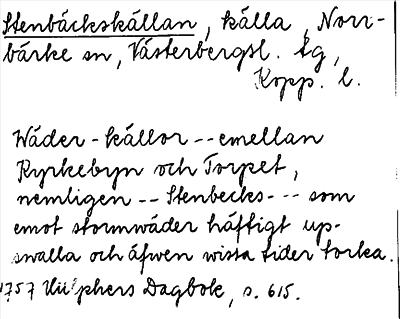 Stenbäckskällan, källa, Norr-
bärke sn, Västerbergsl. tg,
Kopp. l.
Wäder-källor -- emellan
Kyrkebyn och Torpet,
nemligen -- Stenbecks- -- som
emot stormwäder häftigt up-
swalla och äfwen wissa tider torka.
1757 Hülphers Dagbok, s. 615.